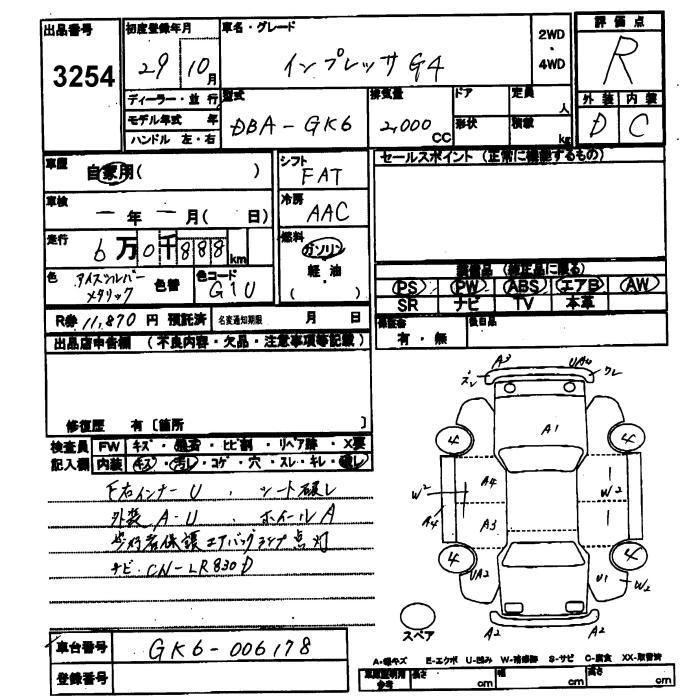 出品番号 初度登録年月 車名・グレード 2WD・4WD 評価点
3254 29 10月 インプレッサ G4 R
ディーラー・並行 型式 排気量 ドア 定員 人 外装 内装
モデル年式 年 DBA-GK6 2,000CC 形状 積載 kg D C
ハンドル 左・右
車歴 自家用( ) シフト FAT セールスポイント (正常に確認するもの)
車検 ー年ー月( 日) 冷房 AAC
走行 6万0千888km 燃料 ガソリン
軽・油
( )
色 アイスシルバーメタリック 色替 色コード G1U
装備品 (純正品に限る)
PS PW ABS エアB AW
SR ナビ TV 本革
R券 11,870円 預託済 名変通知期限 月 日 保証書 有・無 後日品
出品店申告欄 (不良内容・欠品・注意事項等記載)
修復歴 有〔箇所 〕
検査員 FW キズ・飛石・ヒビ割・リペア跡・X要
記入欄 内装 キズ・汚レ・コゲ・穴・スレ・キレ・破レ
F右インナーU、シート破レ
外装A-U、ホイールA
歩行者保護エアバッグランプ点灯
ナビ・CN-LR830D
車台番号 GK6-006178
登録番号
A3 UA4
ズレ ワレ
A1
4 4
A4
W2 W2
A4 A3
4 4
UA2 U1 W2
A2 A2
スペア
A-軽キズ E-エクボ U-凹み W-補修跡 S-サビ C-腐食 XX-取替済
車庫証明用参考 長さ cm 幅 cm 高さ cm